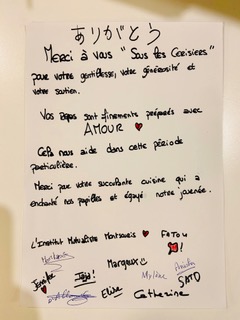 ありがとう
Merci à vous "Sous les Cerisiers"
pour votre gentillesse, votre générosité et
votre soutien.
Vos Repas sont finement préparés avec
AMOUR
Cela nous aide dans cette période
particulière.
Merci pour votre succulente cuisine qui a
enchanté nos papilles et égayé notre journée.
L'Institut Mutualiste Montsouris FATOU
Margaux
Mylène
Jennifer
SATO
Elisa
Catherine